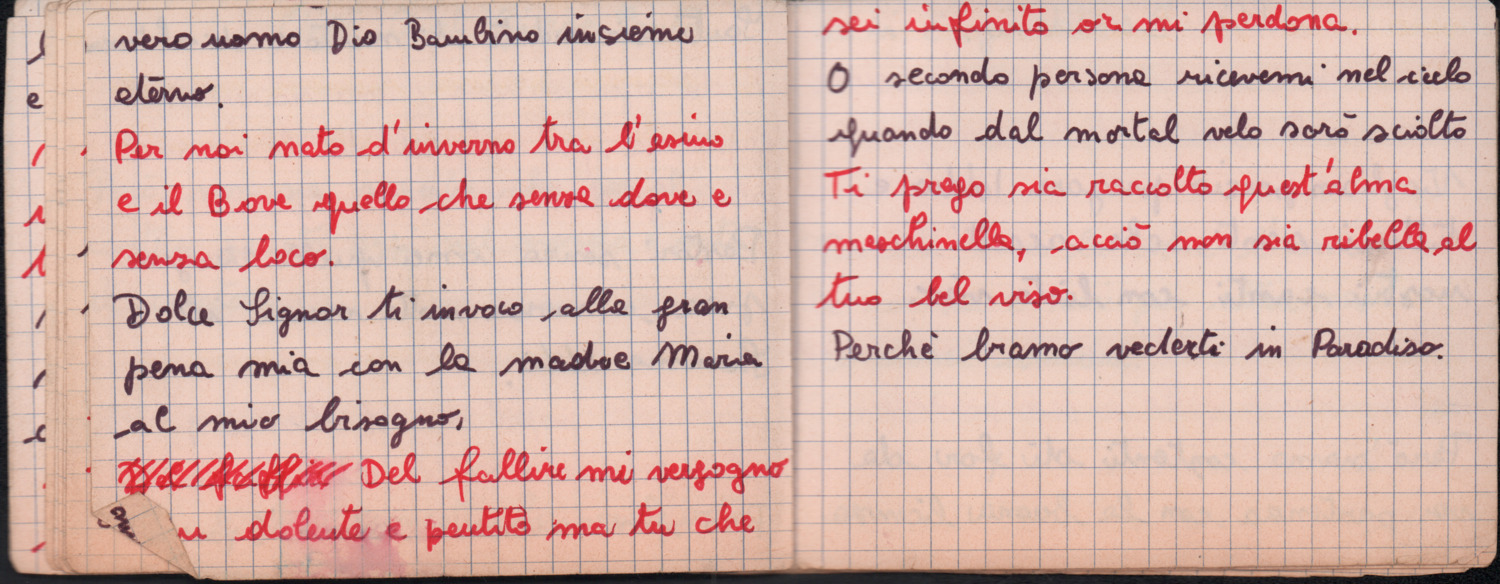 vero uomo Dio Bambino insieme
etērno.
Per noi nato d'inverno tra l'asino
e il Bove quello che senza dove e
senza loco.
Dolce Signor ti invoco alla gran
pena mia con la madre Maria
al mio bisogno,
Del fallire mi vergogno
dolente e pentito ma tu che
sei infinito or mi perdona.
O secondo persona ricevemi nel cielo
quando dal mortal velo sarò sciolto
Ti prego sia raccolto quest'alma
meschinella, acciò non sia ribella al
tuo bel viso.
Perchè bramo vederti in Paradiso.